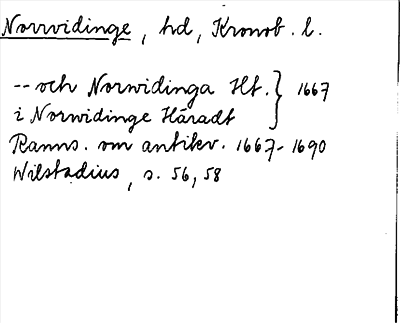 Norrvidinge, hd, Kronob. l.
-- och Norwidinga Ht. } 1667
i Norwidinge Häradt
Ranns. om antikv. 1667-1690
Wilstadius, s. 56, 58